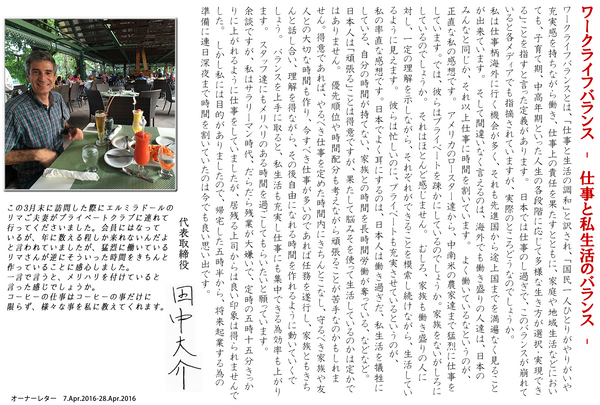 ワークライフバランス － 仕事と私生活のバランス －
ワークライフバランスとは、「仕事と生活の調和」と訳され、「国民一人ひとりがやりがいや
充実感を持ちながら働き、仕事上の責任を果たすとともに、家庭や地域生活などにおい
ても、子育て期、中高年期といった人生の各段階に応じて多様な生き方が選択・実現でき
る」ことを指すと言った定義があります。日本では仕事のし過ぎで、このバランスが崩れて
いると各メディアでも指摘されていますが、実際のところどうなのでしょうか。
私は仕事柄海外に行く機会が多く、それも先進国から途上国までを満遍なく見ること
が出来ています。そして間違いなく言えるのは、海外でも働き盛りの人達は、日本の
みんなと同じか、それ以上仕事に時間を割いています。よく働いているなというのが、
正直な私の感想です。アメリカのロースター達から、中南米の農家達まで猛烈に仕事を
しています。では、彼らはプライベートを疎かにしているのでしょうか。家族をないがしろに
しているのでしょうか。それはほとんど感じません。むしろ、家族も働き盛りの人に
対し、一定の理解を示しながら、それぞれができることを模索し続けながら、生活してい
るように見えます。彼らは忙しいのに、プライベートも充実させてるというのが、
私の率直な感想です。日本でよく耳にするのは、日本人は働き過ぎだ、私生活を犠牲に
している、自分の時間が持てない、家族との時間を長時間労働が奪っている、などなど。
日本人は「頑張る」ことは得意ですが、果たして脳みそを使って生活しているのかは定かで
はありません。優先順位や時間配分も考えながら頑張ることが苦手なのかもしれま
せん。得意であれば、やるべき仕事を定めた時間内にきちんとこなし、守るべき家族や友
人との大切な時間も作り、今すべき仕事が多いのであれば任務を遂行し、家族ともきち
んと話し合い、理解を得ながら、その後自由になれる時間を作れるように動いていくで
しょう。バランスを上手に取ると、私生活も充実し仕事にも集中できる為効率も上がり
ます。スタッフ達にもメリハリのある時間を過ごしてもらいたいと願っています。
余談ですが、私はサラリーマン時代、だらだら残業が大嫌いで、定時の五時十五分きっか
りに上がれるように仕事をしていましたが、居残る上司からは良い印象は得られませんで
した。しかし私には目的がありましたので、帰宅した五時半から、将来起業する為の
準備に連日深夜まで時間を割いていたのは今でも良い思い出です。
代表取締役
田中大介
この3月末に訪問した際にエルミラドールの
リマご夫妻がプライベートクラブに連れて
行ってくださいました。会員にはなって
いるが、年に数える程しか来れないんだよ
と言われていましたが、猛烈に働いている
リマさんが逆にそういった時間をきちんと
作っていることに感心しました。
一言で言うと、メリハリを付けていると
言った感じでしょうか。
コーヒーの仕事はコーヒーの事だけに
限らず、様々な事を私に教えてくれます。
オーナーレター 7.Apr.2016-28.Apr.2016